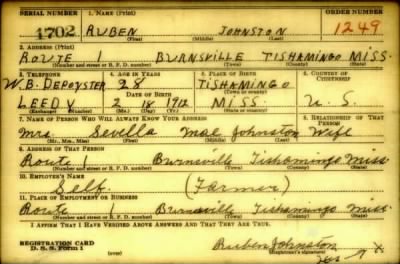 SERIAL NUMBER 1. NAME (Print) ORDER NUMBER
1702 RUBEN JOHNSTON 1249
(First) (Middle) (Last)
2. ADDRESS (Print)
ROUTE 1 BURNSVILLE TISHAMINGO MISS.
(Number and street or R. F. D. number) (Town) (County) (State)
3. TELEPHONE 4. AGE IN YEARS 5. PLACE OF BIRTH 6. COUNTRY OF CITIZENSHIP
W.B. DEPOYSTER 28 TISHAMINGO
DATE OF BIRTH (Town or county)
LEEDV. 2 18 1912 MISS. U. S.
(Exchange) (Number) (Mo.) (Day) (Yr.) (State or country)
7. NAME OF PERSON WHO WILL ALWAYS KNOW YOUR ADDRESS 8. RELATIONSHIP OF THAT PERSON
Mrs. Sevella Mae Johnston Wife
(Mr., Mrs., Miss) (First) (Middle) (Last)
9. ADDRESS OF THAT PERSON
Route 1 Burnsville Tishamingo Miss
(Number and street or R. F. D. number) (Town) (County) (State)
10. EMPLOYER'S NAME
Self. (Farmer)
11. PLACE OF EMPLOYMENT OR BUSINESS
Route 1 Burnsville Tishamingo Miss.
(Number and street or R. F. D. number) (Town) (County) (State)
I AFFIRM THAT I HAVE VERIFIED ABOVE ANSWERS AND THAT THEY ARE TRUE.
REGISTRATION CARD
D. S. S. Form 1 (over) Ruben Johnston X
(Registrant's signature)